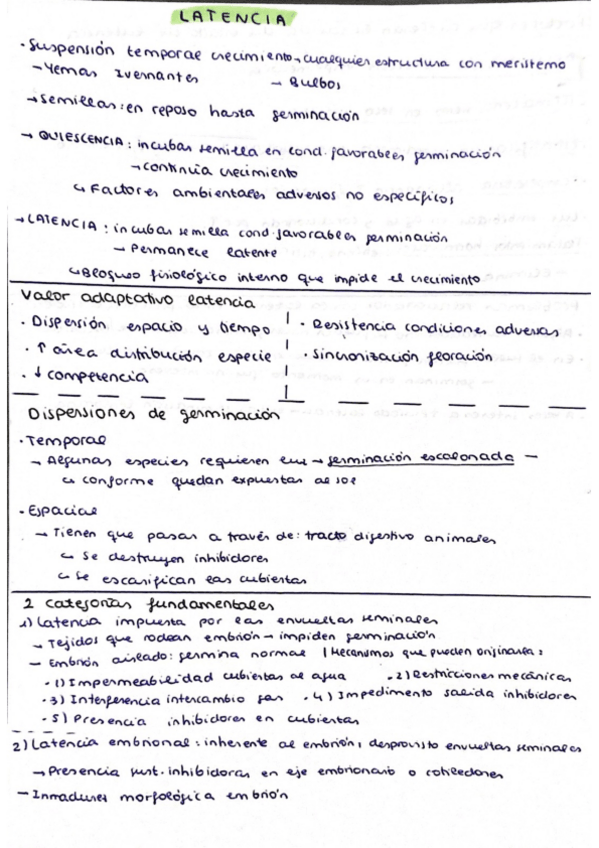 LATENCIA
· Suspensión temporal crecimiento, cualquier estructura con meristemo
- Yemas Ivernantes - Bulbos
→ Semillas: en reposo hasta germinación
→ QUIESCENCIA: incubas semilla en cond. favorables germinación
→ continúa crecimiento
↳ Factores ambientales adversos no específicos
→ LATENCIA: incubas semilla cond. favorables germinación
→ Permanece latente
↳ Bloqueo fisiológico interno que impide el crecimiento
Valor adaptativo latencia
· Dispersión espacio y tiempo
· ↑ área distribución especie
· ↓ competencia
· Resistencia condiciones adversas
· Sincronización floración
Dispersiones de germinación
· Temporal
→ Algunas especies requieren luz → germinación escalonada -
↳ conforme quedan expuestas al sol
· Espacial
→ Tienen que pasar a través de: tracto digestivo animales
↳ Se destruyen inhibidores
↳ Se escarifican las cubiertas
2 categorías fundamentales
1) Latencia impuesta por las envueltas seminales
→ Tejidos que rodean embrión → impiden germinación
- Embrión aislado: germina normal | Mecanismos que pueden originarla:
· 1) Impermeabilidad cubiertas al agua · 2) Restricciones mecánicas
· 3) Interferencia intercambio gas · 4) Impedimento salida inhibidores
· 5) Presencia inhibidores en cubiertas
2) Latencia embrional: inherente al embrión, desprovisto envueltas seminales
→ Presencia sust. inhibidoras en eje embrionario o cotiledones
- Inmadurez morfológica embrión